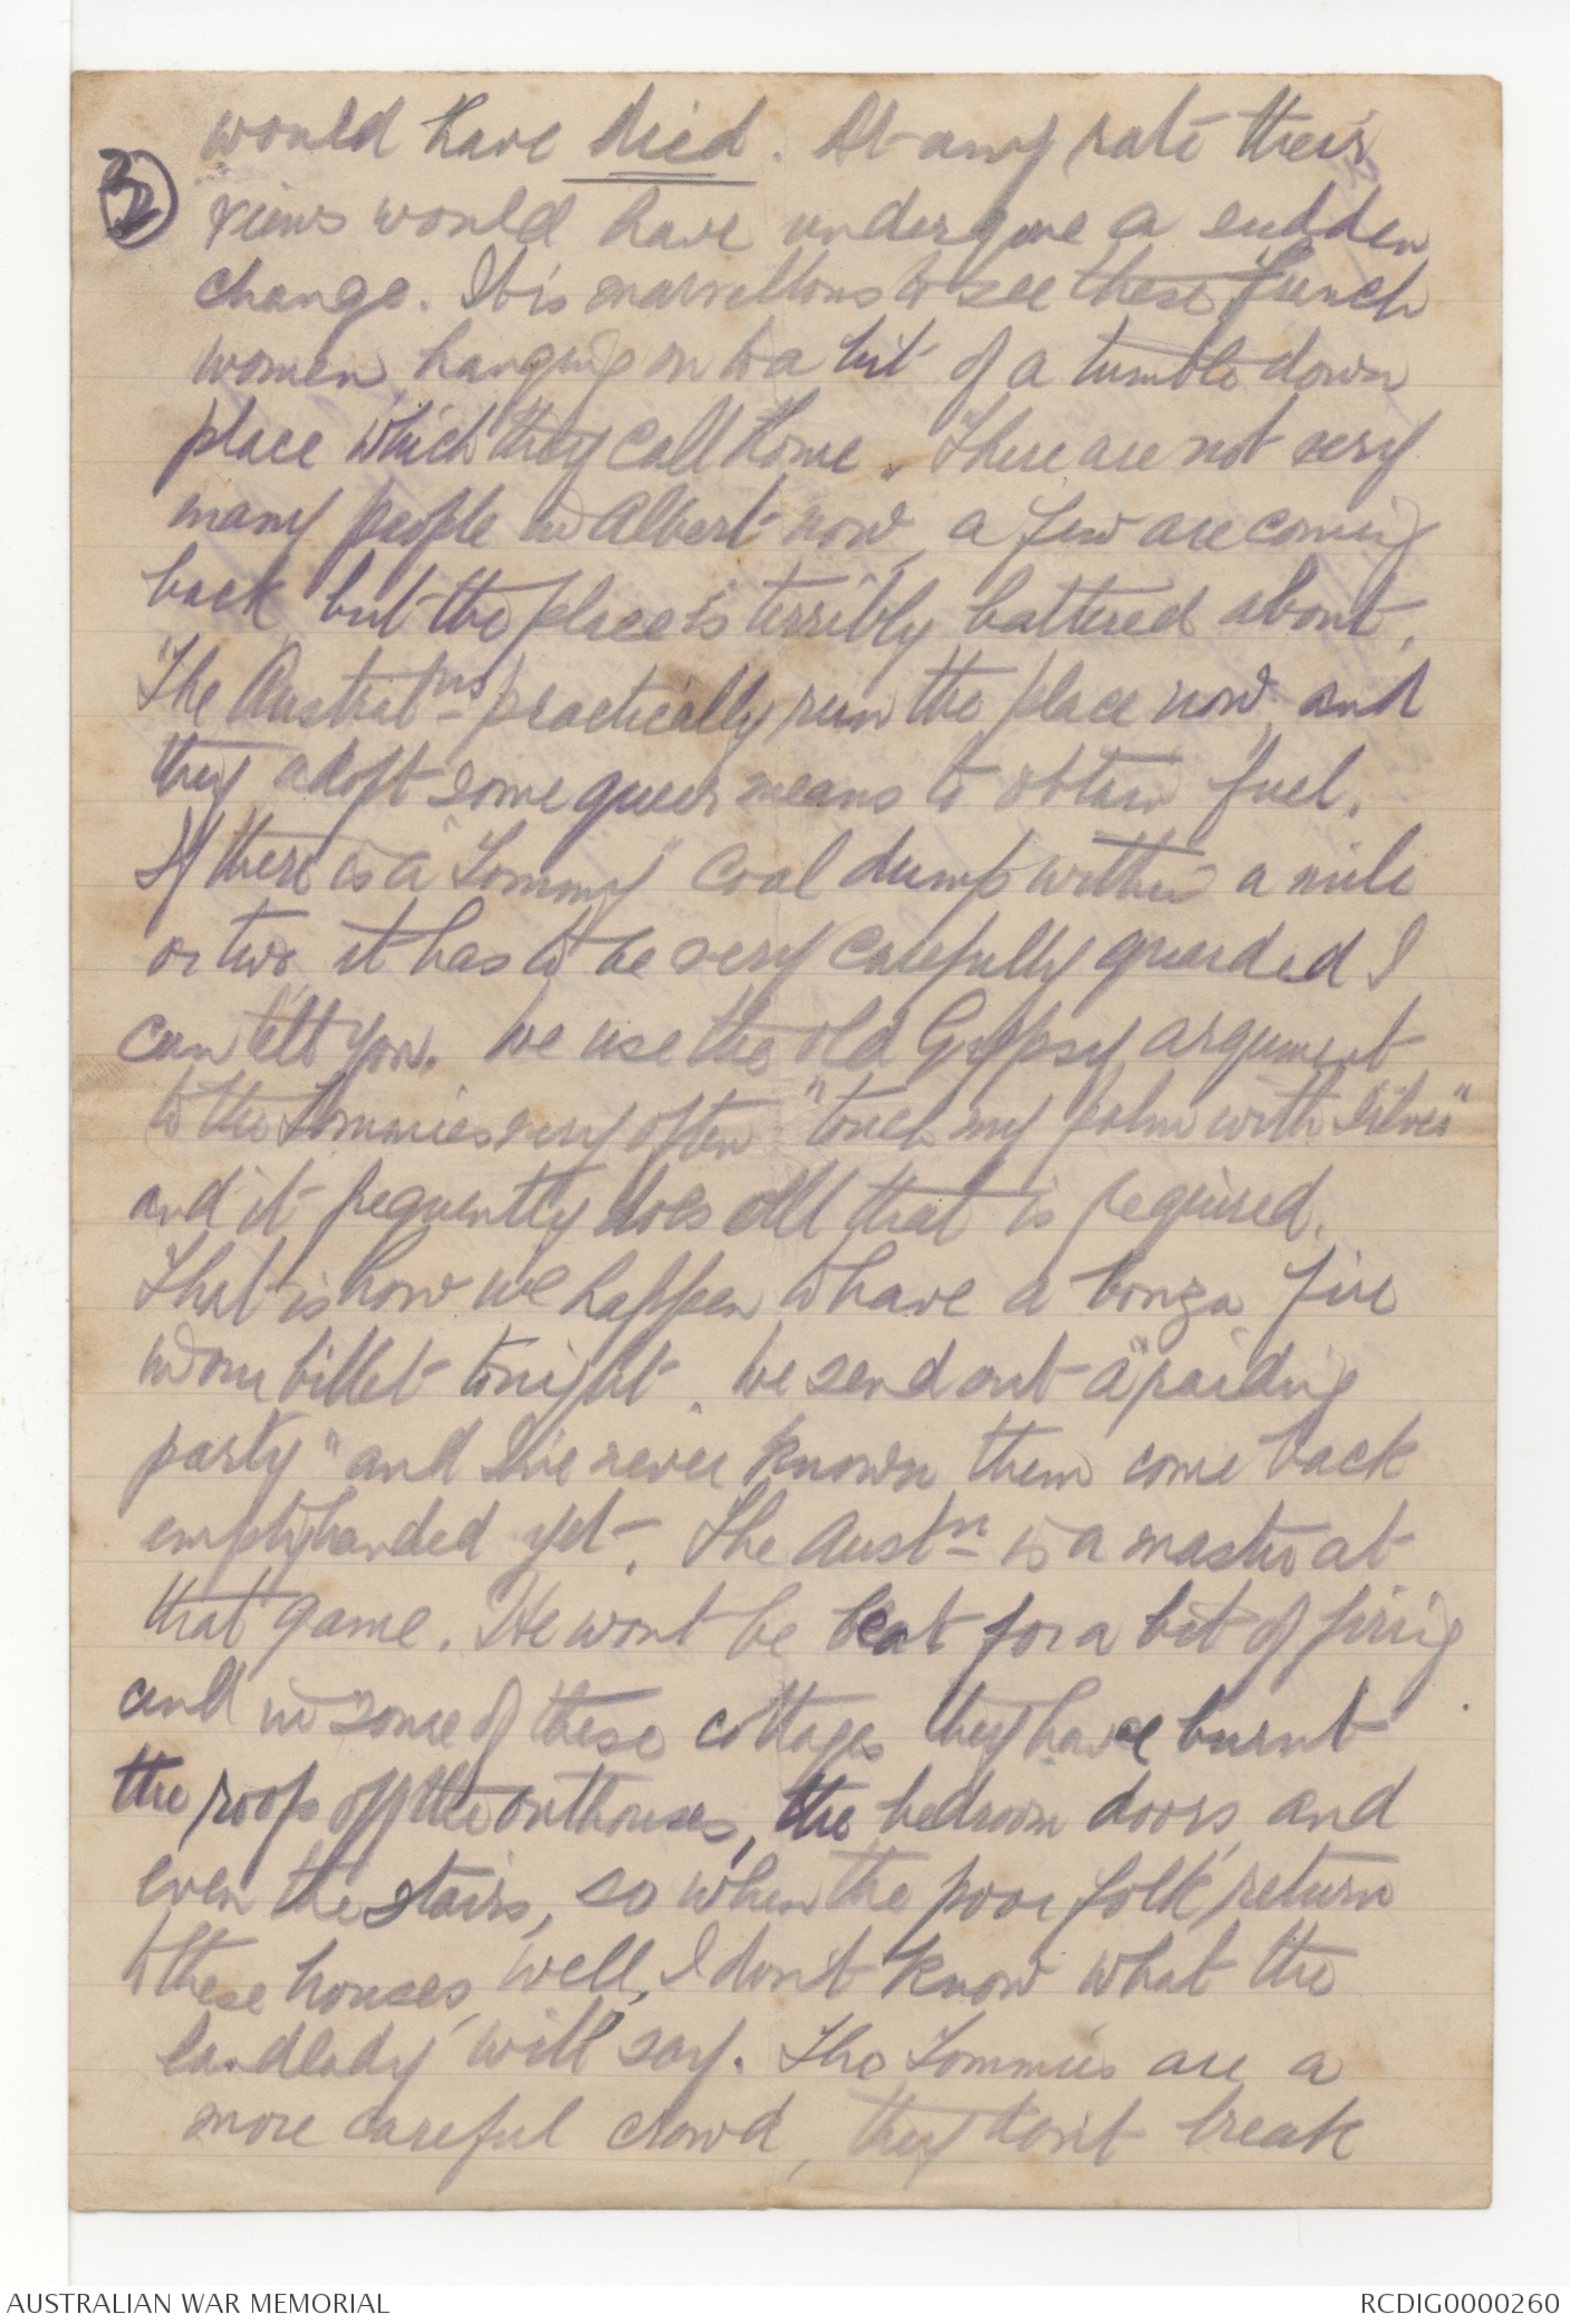 3
would have died. At any rate their
views would have undergone a sudden
change. It is marvellous to see these French
women hanging on to a bit of a tumble down
place which they call Home. There are not very
many people in Albert now, a few are coming
back but the place is terribly battered about.
The Austral<sup>ns</sup> practically run the place now, and
they adopt some queer means to obtain fuel.
If there is a "Tommy" coal dump within a mile
or two it has to be very carefully guarded I
can tell you. We use the old Gypsy argument
to the Tommies very often "touch my palm with silver"
and it frequently does all that is required.
That is how we happen to have a bonza fire
in our billet tonight. We send out a "raiding
party" and I've never known them come back
emptyhanded yet. The Aust<sup>rn</sup> is a master at
that game. He wont be beat for a bit of firing
and in some of these cottages they have burnt
the roofs off the outhouses, the bedroom doors, and
even the stairs, so when the poor folk return
to these houses, well, I don't know what the
landlady will say. The Tommies are a
more careful crowd, they don't break
AUSTRALIAN WAR MEMORIAL
RCDIG0000260